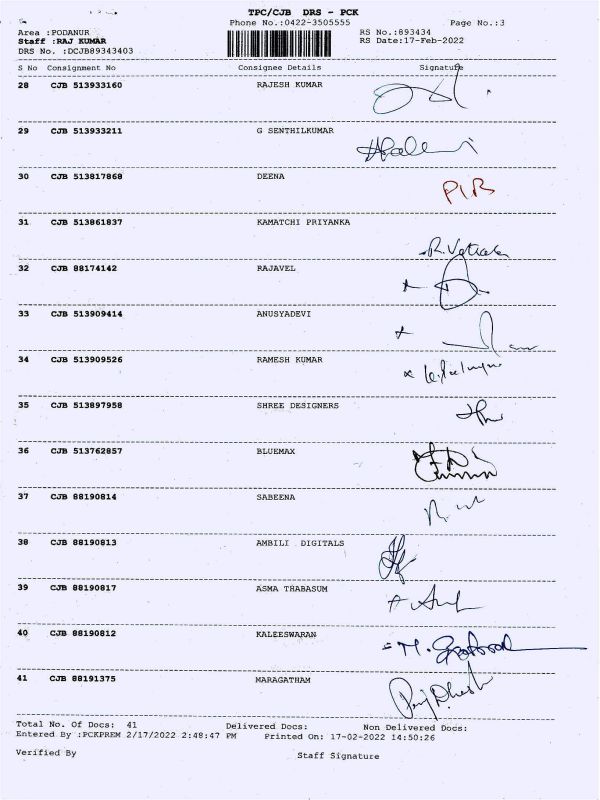 TPC/CJB DRS - PCK
Phone No.:0422-3505555 Page No.:3
Area :PODANUR RS No.:893434
Staff :RAJ KUMAR RS Date:17-Feb-2022
DRS No. :DCJB89343403
S No Consignment No Consignee Details Signature
28 CJB 513933160 RAJESH KUMAR
29 CJB 513933211 G SENTHILKUMAR
30 CJB 513817868 DEENA
31 CJB 513861837 KAMATCHI PRIYANKA
32 CJB 88174142 RAJAVEL
33 CJB 513909414 ANUSYADEVI
34 CJB 513909526 RAMESH KUMAR
35 CJB 513897958 SHREE DESIGNERS
36 CJB 513762857 BLUEMAX
37 CJB 88190814 SABEENA
38 CJB 88190813 AMBILI DIGITALS
39 CJB 88190817 ASMA THABASUM
40 CJB 88190812 KALEESWARAN
41 CJB 88191375 MARAGATHAM
Total No. Of Docs: 41 Delivered Docs: Non Delivered Docs:
Entered By :PCKPREM 2/17/2022 2:48:47 PM Printed On: 17-02-2022 14:50:26
Verified By Staff Signature